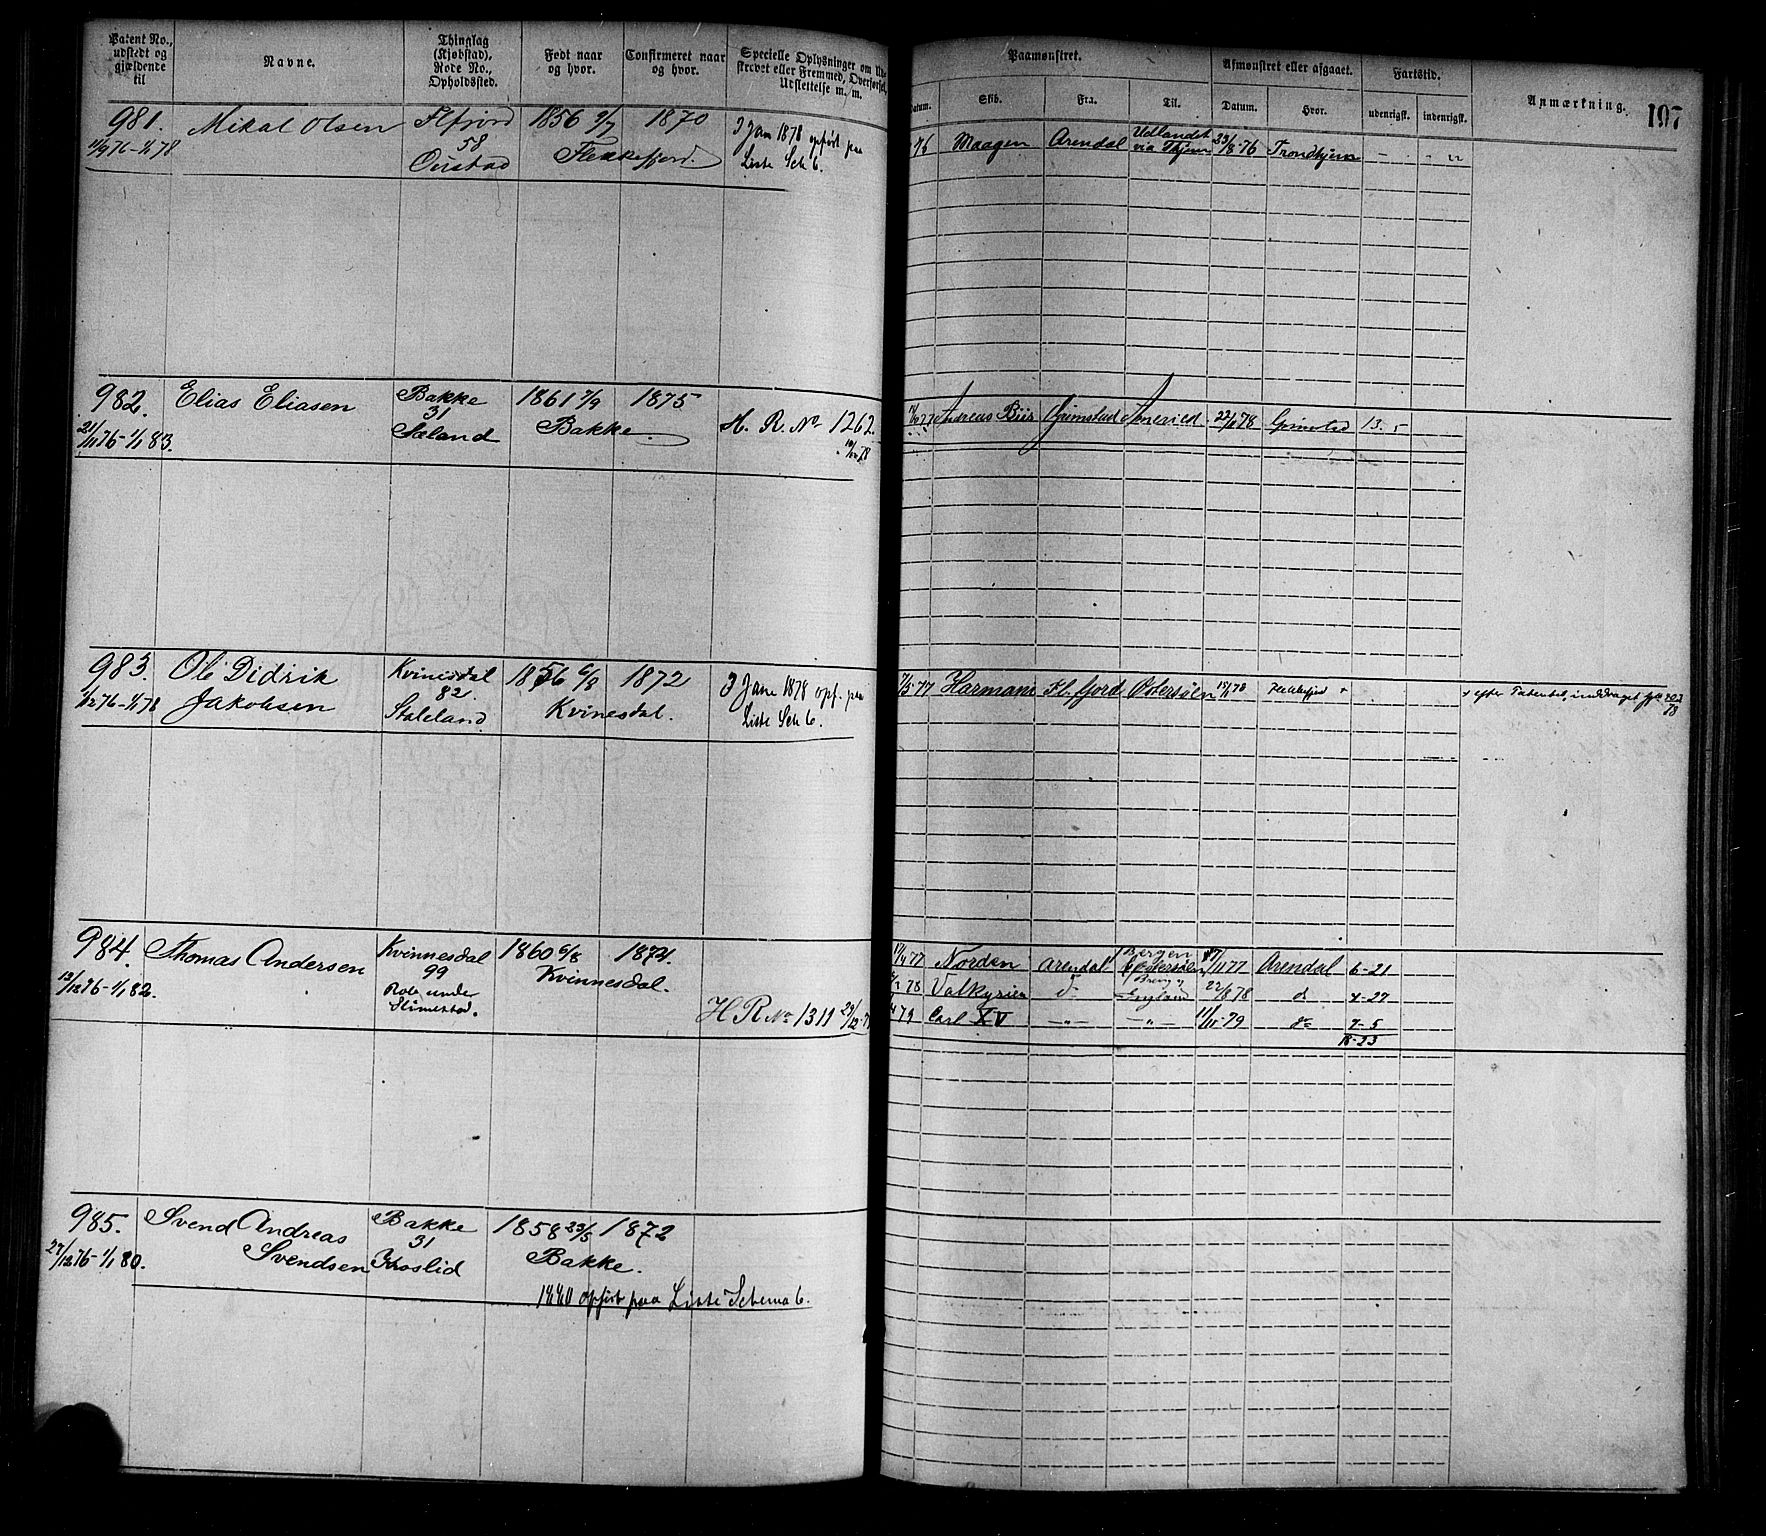 Patent No., udstedt og gjældende til
Navne.
Thinglag (Kjøbstad), Rode No., Opholdssted.
Født naar og hvor.
Confirmeret naar og hvor.
Specielle Oplysninger om
strøbet eller Fremmed, Overførsel, Udslettelse m. m.
Paamønstret.
Datum.
Skib.
Fra.
Til.
Afmønstret eller afgaaet.
Datum.
Hvor.
Fartstid.
udenrigsk.
indenrigsk.
Anmærkning.
197
981. Mikal Olsen Flfjord 1856 9/7 1870 3 Jan 1878 opført paa
11/9 76-1/1 78 58 Flekkefjord. Liste Sch 6.
Oustad
76 Maagen Arendal Udlandet via Thjem 23/8-76 Trondhjem
982. Elias Eliasen Bakke 1861 7/9 1875
21/11 76-1/1 83. 31 Bakke. H. R. No 1262.
Sæland
Andreas Grimstad 22/78 Grimstad 13. 5
983. Ole Didrik Kvinesdal 1856 6/8 1872 3 Jan 1878 opf. paa
1/12 76-1/1 78 Jakobsen 82 Kvinesdal. Liste Sch 6.
Staleland
7/3-77 Harmoni Fl.fjord Østersøen Flekkefjord +
+ efter Patentet, inddraget
984. Thomas Andersen Kvinnesdal 1860 6/8 1874.
13/12 76-1/1 82. 99 Kvinnesdal.
Rode under
H R No 1311
77 Norden Arendal Bergen Østersøen 77 Arendal 6-21
78 Valkyrien do England 22/8 78 do 4-27
79 Carl XV -"- -"- 11/11-79 do 7-5
18-23
985. Svend Andreas Bakke 1858 23/5 1872
27/12 76-1/1 80. Svendsen 31 Bakke.
Kroslid
1880 opført paa Liste Schema 6.